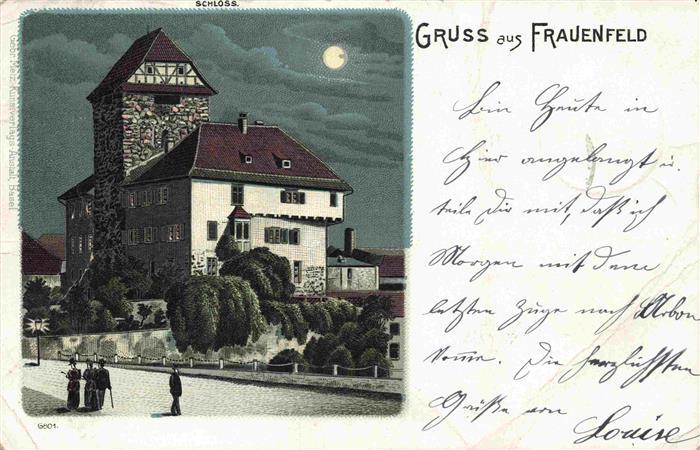 SCHLOSS.
GRUSS aus FRAUENFELD
Gebr. Metz, Kunstverlags-Anstalt, Basel
Bin Heute in
Hier angelangt u.
teile Dir mit, daß ich
Morgen mit dem
letzten Zuge nach Arbon
komme. Die herzlichsten
Grüße von
Louise
6801.